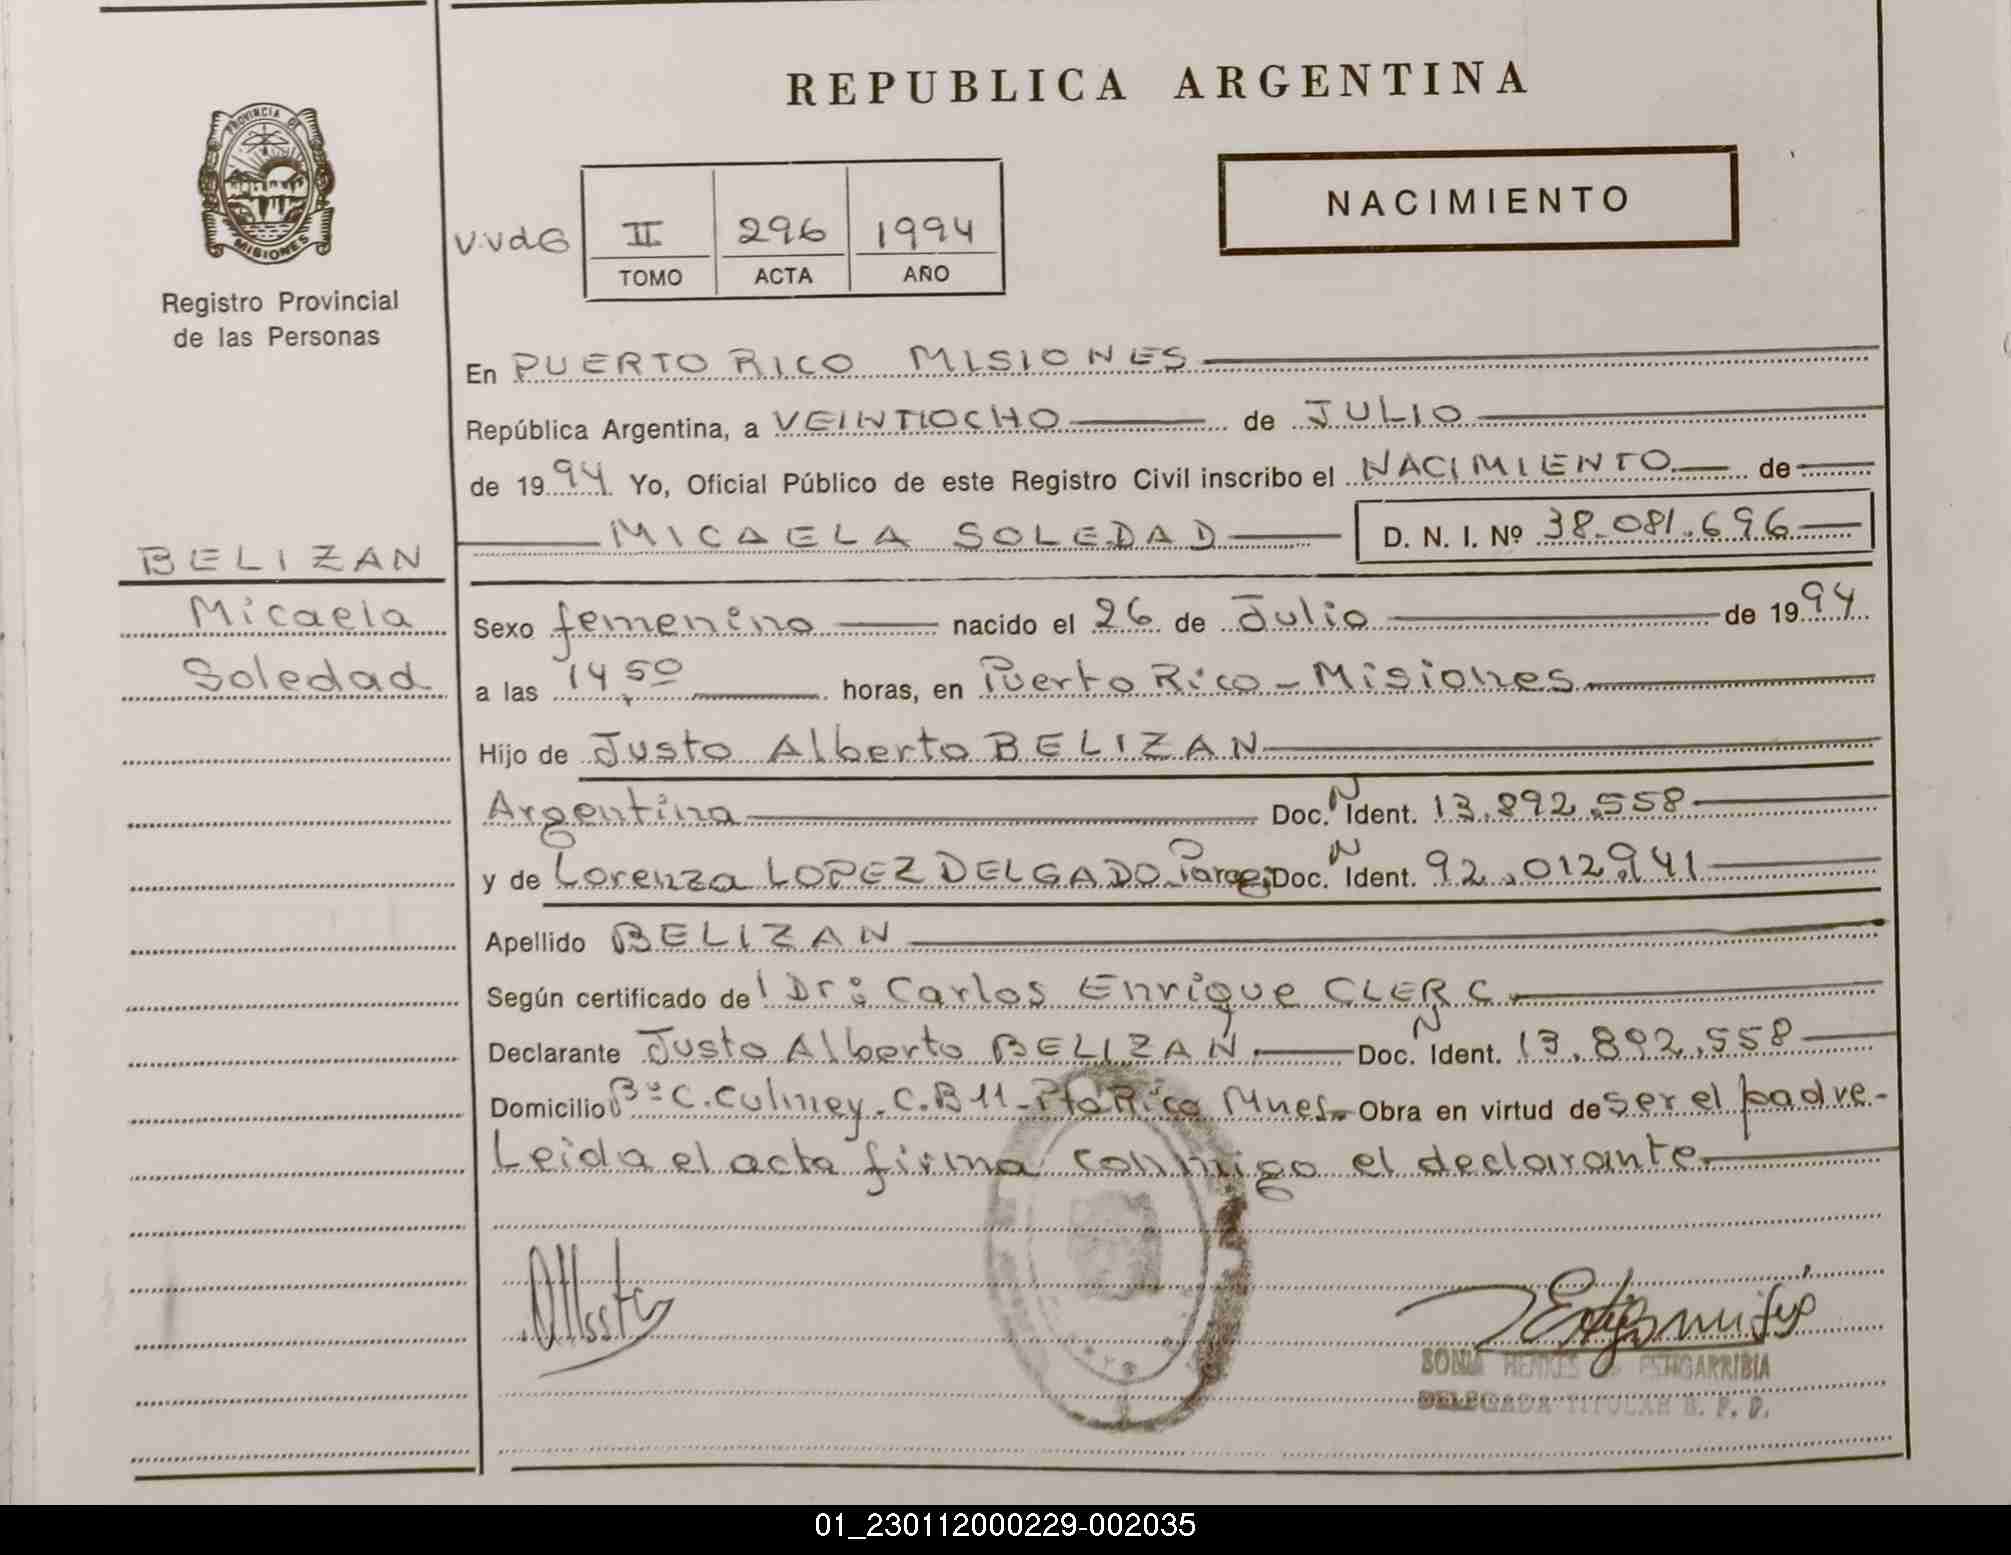 REPUBLICA ARGENTINA
PROVINCIA DE
MISIONES
Registro Provincial
de las Personas
NACIMIENTO
V.VdG II 296 1994
TOMO ACTA AÑO
En PUERTO RICO MISIONES
República Argentina, a VEINTIOCHO de JULIO
de 1994. Yo, Oficial Público de este Registro Civil inscribo el NACIMIENTO de
MICAELA SOLEDAD D. N. I. Nº 38.081.696
BELIZAN
Micaela
Soledad
Sexo femenino nacido el 26 de Julio de 1994
a las 14,50 horas, en Puerto Rico - Misiones
Hijo de Justo Alberto BELIZAN
Argentina Doc. N Ident. 13.892.558
y de Lorenza LOPEZ DELGADO Doc. N Ident. 92.012.941
Apellido BELIZAN
Según certificado de l Dr: Carlos Enrique CLERC
Declarante Justo Alberto BELIZAN Doc. N Ident. 13.892.558
Domicilio Bº C. Culmey. C.B 11 - Pto Rico Mnes. Obra en virtud de ser el padre.-
Leida el acta firma conmigo el declarante.
SONIA HENKES ESTIGARRIBIA
DELEGADA TITULAR R. P. P.
01_230112000229-002035